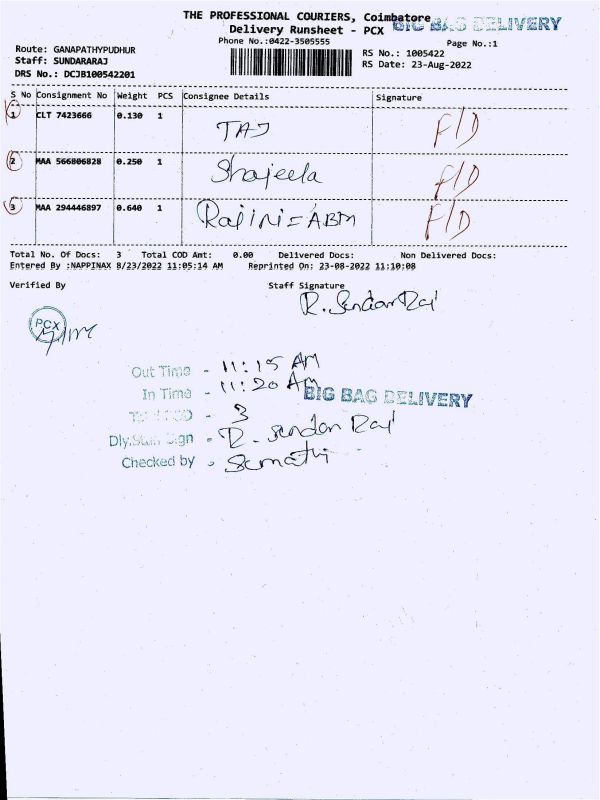 THE PROFESSIONAL COURIERS, Coimbatore
BIG BAG DELIVERY
Delivery Runsheet - PCX
Phone No.:0422-3505555
Page No.:1
Route: GANAPATHYPUDHUR
RS No.: 1005422
Staff: SUNDARARAJ
RS Date: 23-Aug-2022
DRS No.: DCJB100542201
S No Consignment No Weight PCS Consignee Details Signature
1 CLT 7423666 0.130 1 TAJ F/D
2 MAA 566806828 0.250 1 Shajeela F/D
3 MAA 294446897 0.640 1 Rajini=ABM F/D
Total No. Of Docs: 3 Total COD Amt: 0.00 Delivered Docs: Non Delivered Docs:
Entered By :NAPPINAX 8/23/2022 11:05:14 AM Reprinted On: 23-08-2022 11:10:08
Verified By Staff Signature
R. Sundar Raj
PCX
Out Time - 11:15 AM
In Time - 11:20 AM
BIG BAG DELIVERY
- 3
Dly.Staff Sign - R. Sundar Raj
Checked by - Sumathi